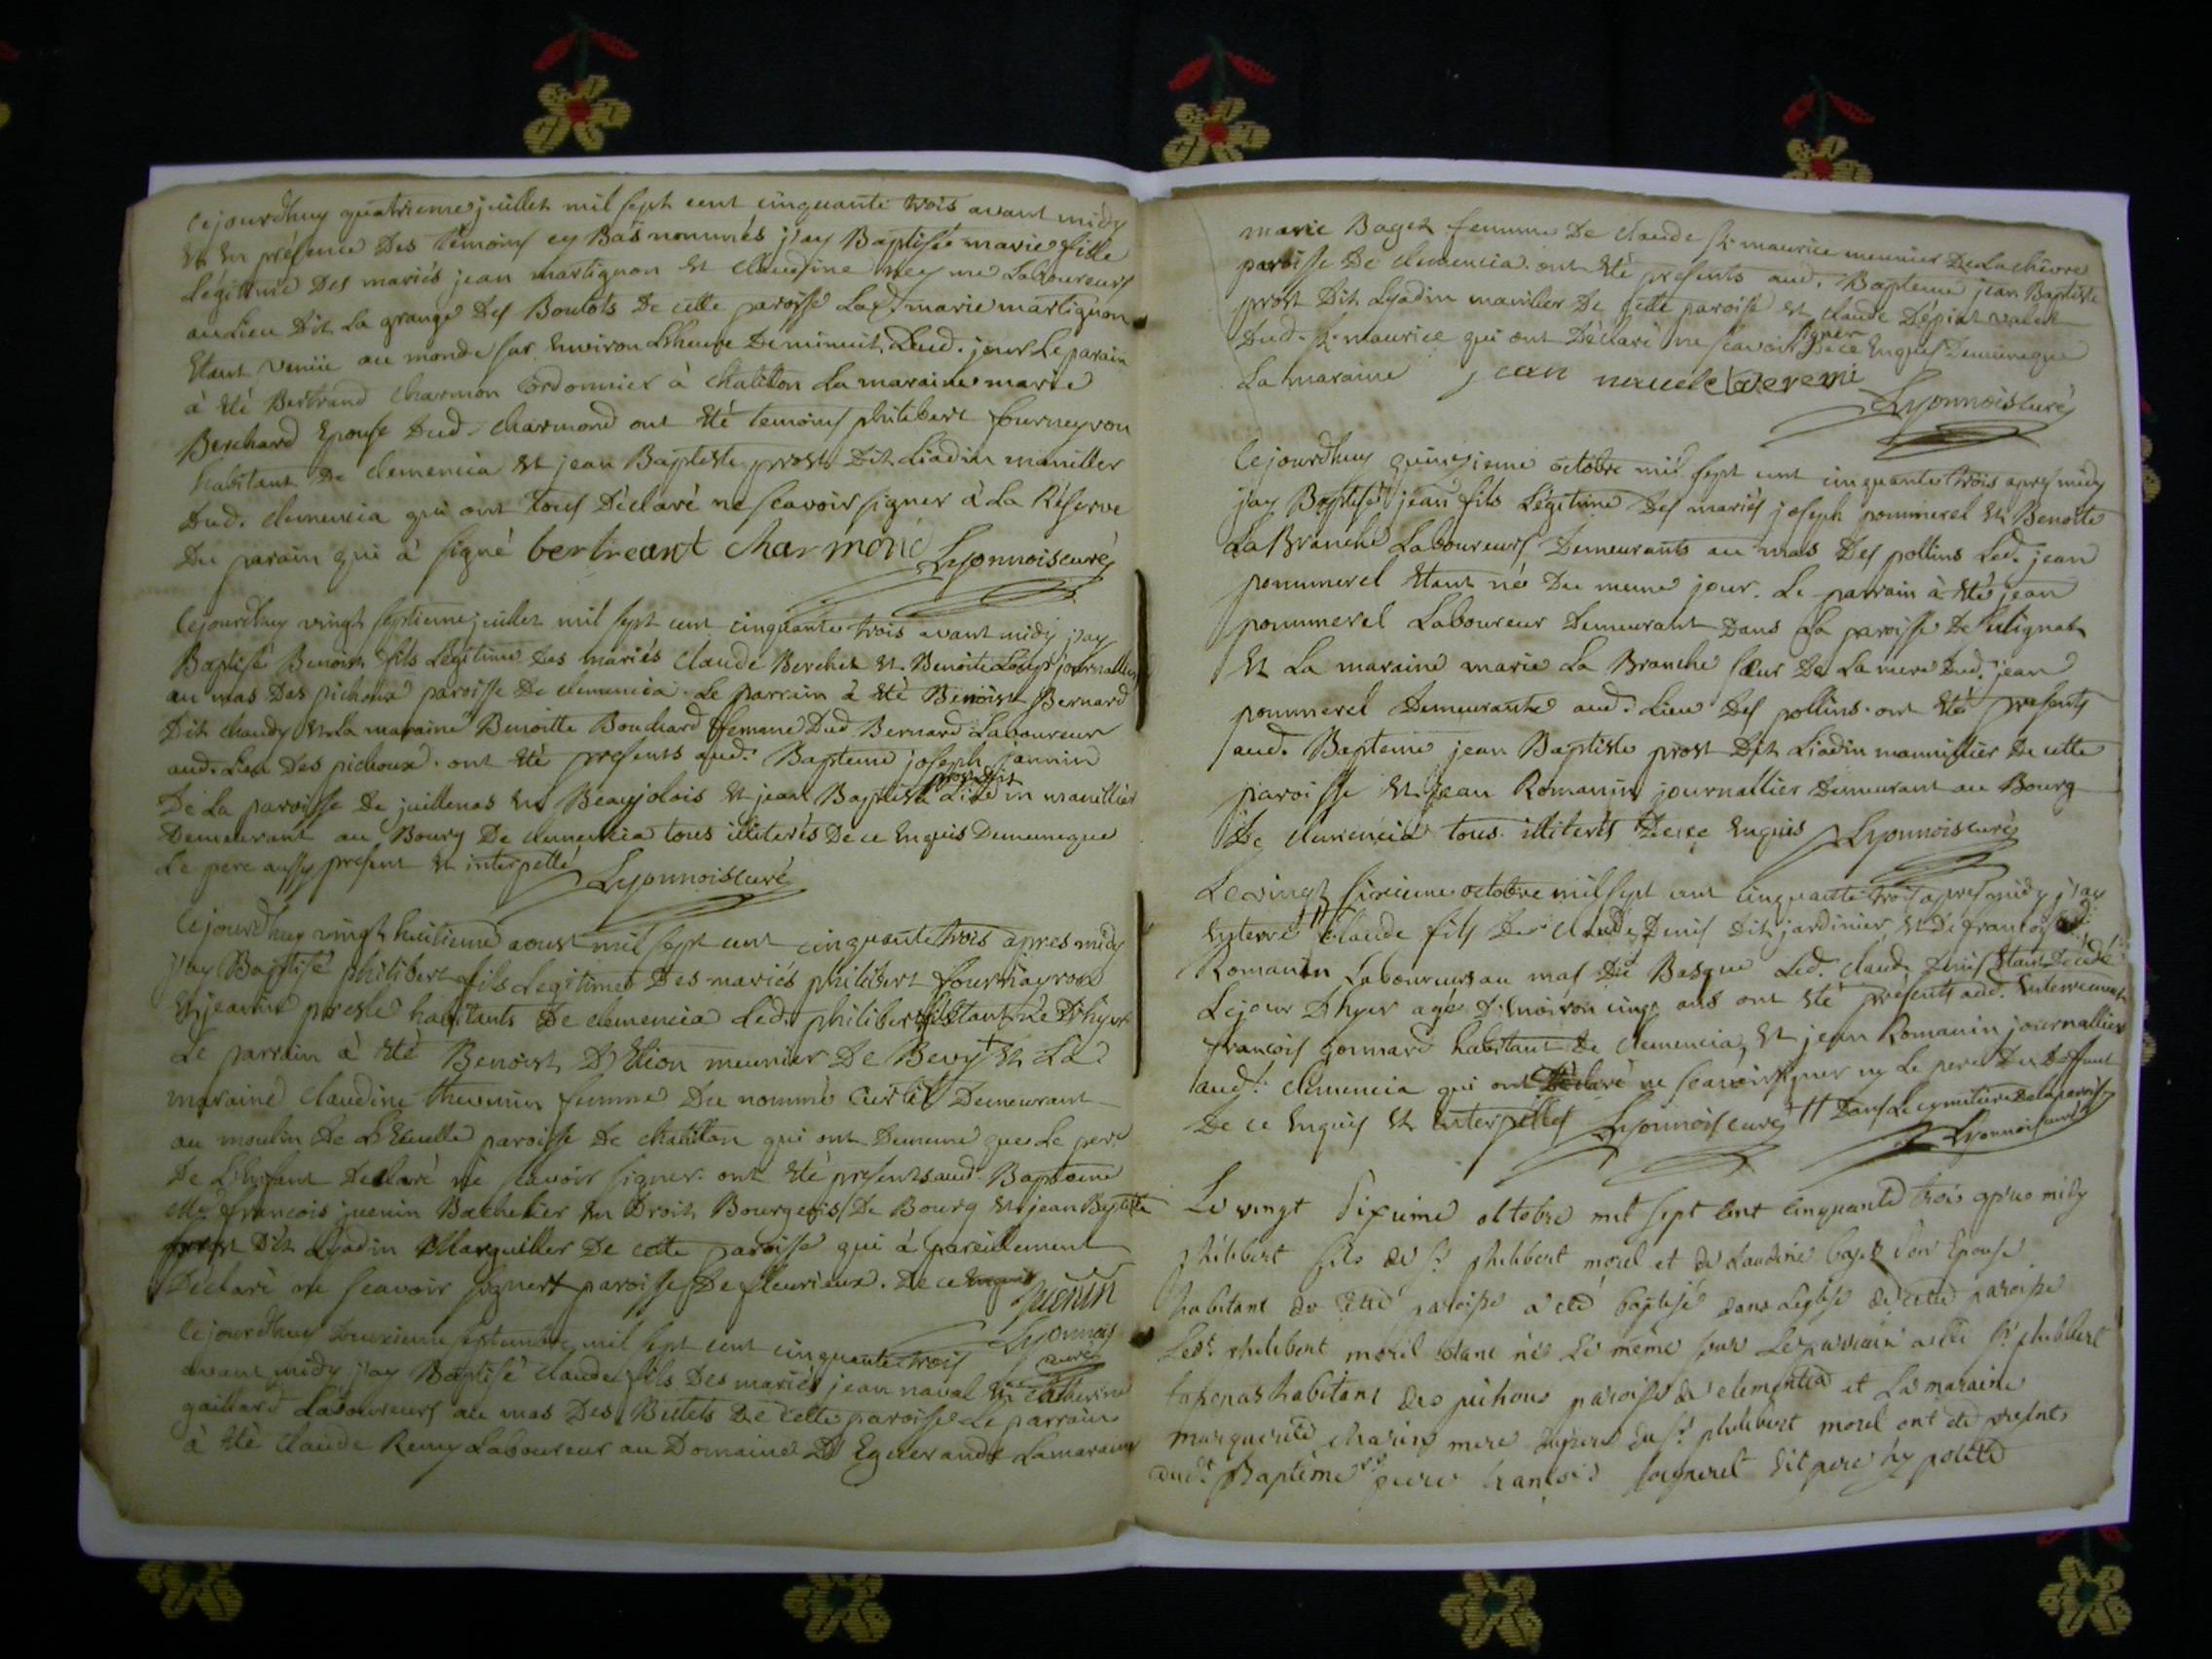 Cejourdhuy quatrieme juillet mil sept cent cinquante trois avant midy
Et En présence Des témoins cy Bas nommés j'ay Baptisée marie fille
Légitime Des mariés jean martignon Et Claudine Laboureurs
au Lieu Dit La grange Des Boulots De cette paroisse Lad. marie martignon
Etant venüe au monde sur Environ L'heure De minuit Dud. jour Le parain
à Eté Bertrand Charmon Cordonnier à Chatillon La maraine marie
Berchard Epouse Dud. Charmond ont Eté temoins philibert fourneyron
habitant De Clemencia Et jean Baptiste prost Dit Liadin maniller
Dud. Clemencia qui ont tous Déclaré ne scavoir signer à La Réserve
Du parain qui à signé bertreant Charmond Lyonnois curé
Cejourdhuy vingt septieme juillet mil sept cent cinquante trois avant midy j'ay
Baptisé Benoist fils Légitime Des mariés Claude Berchet Et Benoite journallier
au mas Des pichoux paroisse De Clemencia. Le parrain à Eté Benoist Bernard
Dit Claudy Et La maraine Benoitte Bouchard femme Dud Bernard Laboureur
aud. Lieu Des pichoux. ont Eté presents aud. Bapteme joseph jannin
De La paroisse De juillenas En Beaujolois Et jean Baptiste prost dit Liadin manillier
Demeurant au Bourg De Clemencia tous illiterés De ce Enquis Dememeque
Le pere aussy present Et interpellé Lyonnois curé
Cejourdhuy vingt huitieme aoust mil sept cent cinquante trois apres midy
j'ay Baptisé philibert fils Legitime Des mariés philibert fournayron
Et jeanne presle habitants De Clemencia Led. philibert Etant né D'hyer
Le parrain à Eté Benoist D'Etion meunier De Bevy Et La
maraine Claudine thevenin femme Du nommé Curtil Demeurant
au moulin De L'Ecuelle paroisse De Chatillon qui ont Dememe que Le pere
De L'Enfant Declaré ne scavoir signer. ont Eté presents aud. Bapteme
Me francois juenin Bachelier En Droit Bourgeois De Bourg Et jean Baptiste
prost Dit Liadin Marguiller De cette paroisse qui à pareillement
Déclaré ne scavoir signer + paroisse De fleurieux. De ce Enquis Juenin
Lyonnois curé
Cejourdhuy Septembre mil sept cent cinquante trois
avant midy j'ay Baptisé Claude fils Des mariés jean naval Et Catherine
gaillard Laboureurs au mas Des Billets De cette paroisse Le parrain
à Eté Claude Remy Laboureur au Domaine D'Eguerande La maraine
marie Baget femme De Claude St. maurice meunier De La chievre
paroisse De Clemencia. ont Eté presents aud. Bapteme jean Baptiste
prost Dit Lyadin manilier De cette paroisse Et Claude Dépiat valet
Dud. St. maurice qui ont Déclaré ne scavoir signer De ce Enquis Dememeque
La maraine jean Lyonnois curé
Cejourdhuy quinzieme octobre mil sept cent cinquante trois apres midy
j'ay Baptisé jean fils Légitime Des mariés joseph pommerel Et Benoite
La Branche Laboureurs Demeurants au mas Des pollins Led. jean
pommerel Etant né Du meme jour. Le parrain à Eté jean
pommerel Laboureur Demeurant Dans La paroisse De Sulignat
Et La maraine marie La Branche sœur De La mere Dud. jean
pommerel Demeurante aud. Lieu Des pollins. ont Eté presents
aud. Bapteme jean Baptiste prost Dit Liadin mannillier De cette
paroisse Et jean Romanin journallier Demeurant au Bourg
De Clemencia tous illiterés De ce Enquis Lyonnois curé
Le vingt sixieme octobre mil sept cent cinquante trois apres midy j'ay
Enterré // Claude fils De Claude Denis Dit jardinier Et De francoise
Romanin Laboureurs au mas Du Basque Led. Claude Denis Etant Decedé
Le jour D'hyer agé D'Environ cinq ans ont Eté présents aud. Enterrement
francois gonnard habitant De Clemencia, Et jean Romanin journallier
aud. Clemencia qui ont Déclaré ne scavoir signer ny Le pere Du Deffunt
De ce Enquis Et interpellés Lyonnois curé // Dans Le cymetiere De La paroisse
Lyonnois curé
Le vingt Sixieme octobre mil sept cent cinquante trois après midy
philibert fils de Sr. philibert morel et de Claudine baget Son Epouse
habitant de Cette paroisse a eté baptisé dans Leglise de Cette paroisse
Ledt. philibert morel etant né Le même jour Le parrain a eté Sr. philibert
habitant des pichoux paroisse de Clementia et La maraine
marguerite mere du Sr. philibert morel ont eté presents
audt. Baptême pierre francois dit pere hypolite